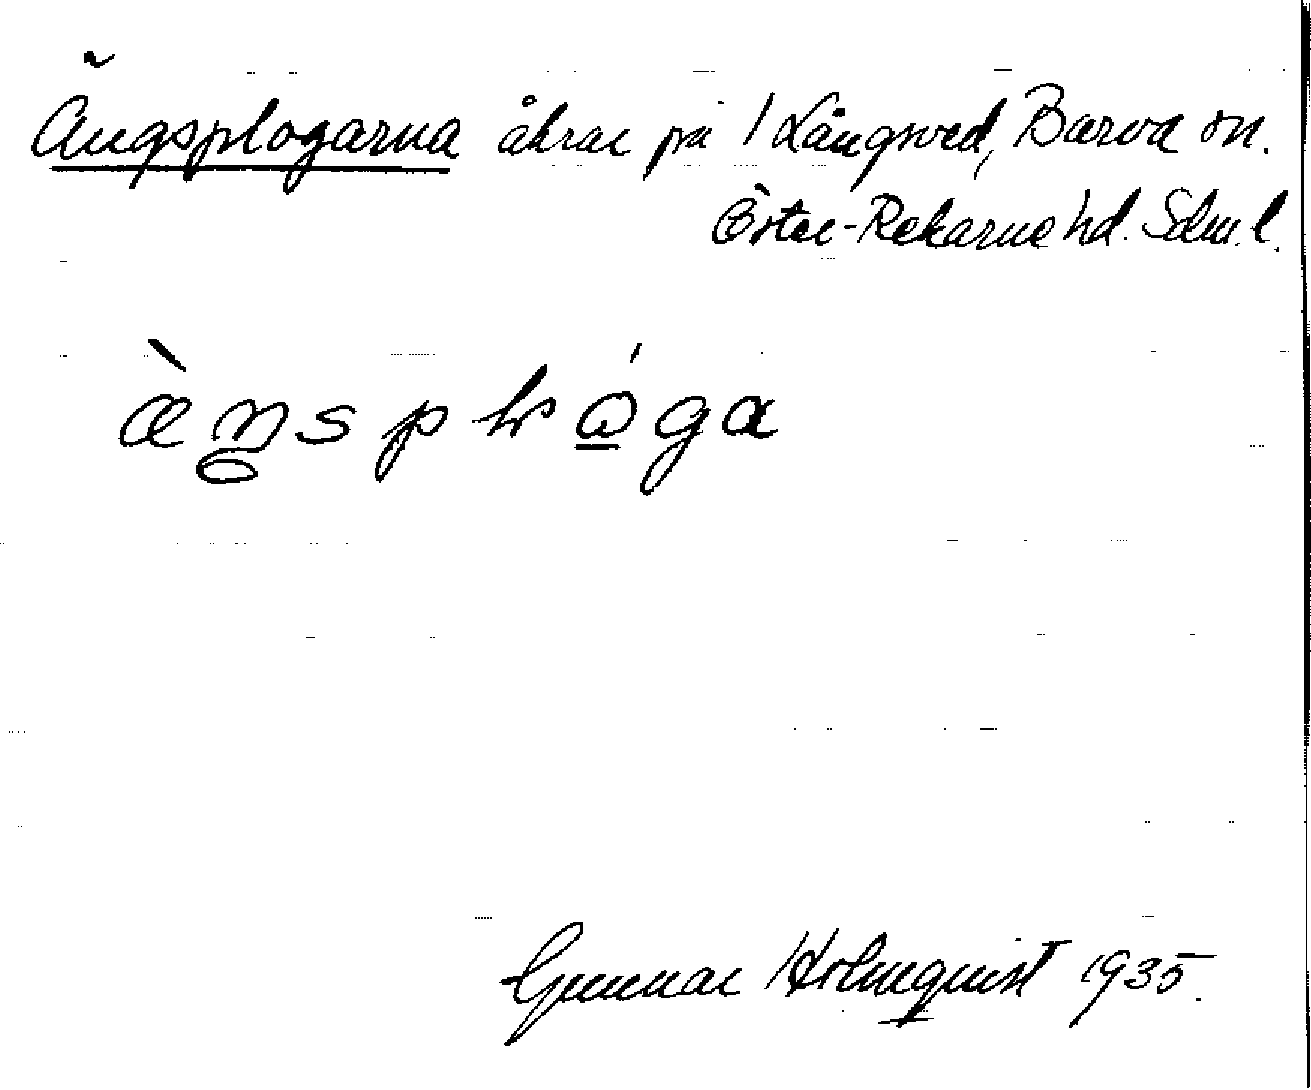 Ängsplogarna åkrar på 1 Långsved, Barva sn.
Öster-Rekarne hd. Sdm. l.
Gunnar Holmquist 1935.